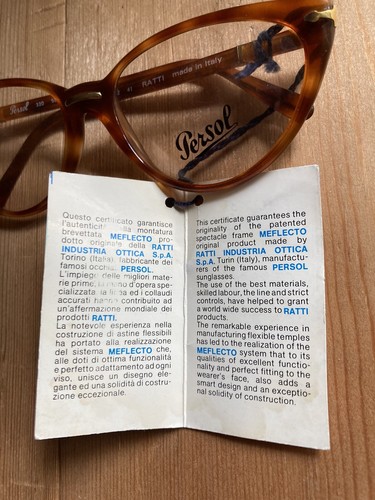 RATTI made in Italy
Persol
Persol
Questo certificato garantisce
l'autenticità montatura
brevettata MEFLECTO pro-
dotto originale della RATTI
INDUSTRIA OTTICA S.p.A.
Torino (Italia) fabbricante dei
famosi occhiali PERSOL.
L'impiego delle migliori mate-
rie prime, la mano d'opera spe-
cializzata, la linea ed i collaudi
accurati hanno contribuito ad
un'affermazione mondiale dei
prodotti RATTI.
La notevole esperienza nella
costruzione di astine flessibili
ha portato alla realizzazione
del sistema MEFLECTO che,
alle doti di ottima funzionalità
e perfetto adattamento ad ogni
viso, unisce un disegno ele-
gante ed una solidità di costru-
zione eccezionale.
This certificate guarantees the
originality of the patented
spectacle frame MEFLECTO
original product made by
RATTI INDUSTRIA OTTICA
S.p.A. Turin (Italy), manufactu-
rers of the famous PERSOL
sunglasses.
The use of the best materials,
skilled labour, the line and strict
controls, have helped to grant
a world wide success to RATTI
products.
The remarkable experience in
manufacturing flexible temples
has led to the realization of the
MEFLECTO system that to its
qualities of excellent functio-
nality and perfect fitting to the
wearer's face, also adds a
smart design and an exceptio-
nal solidity of construction.